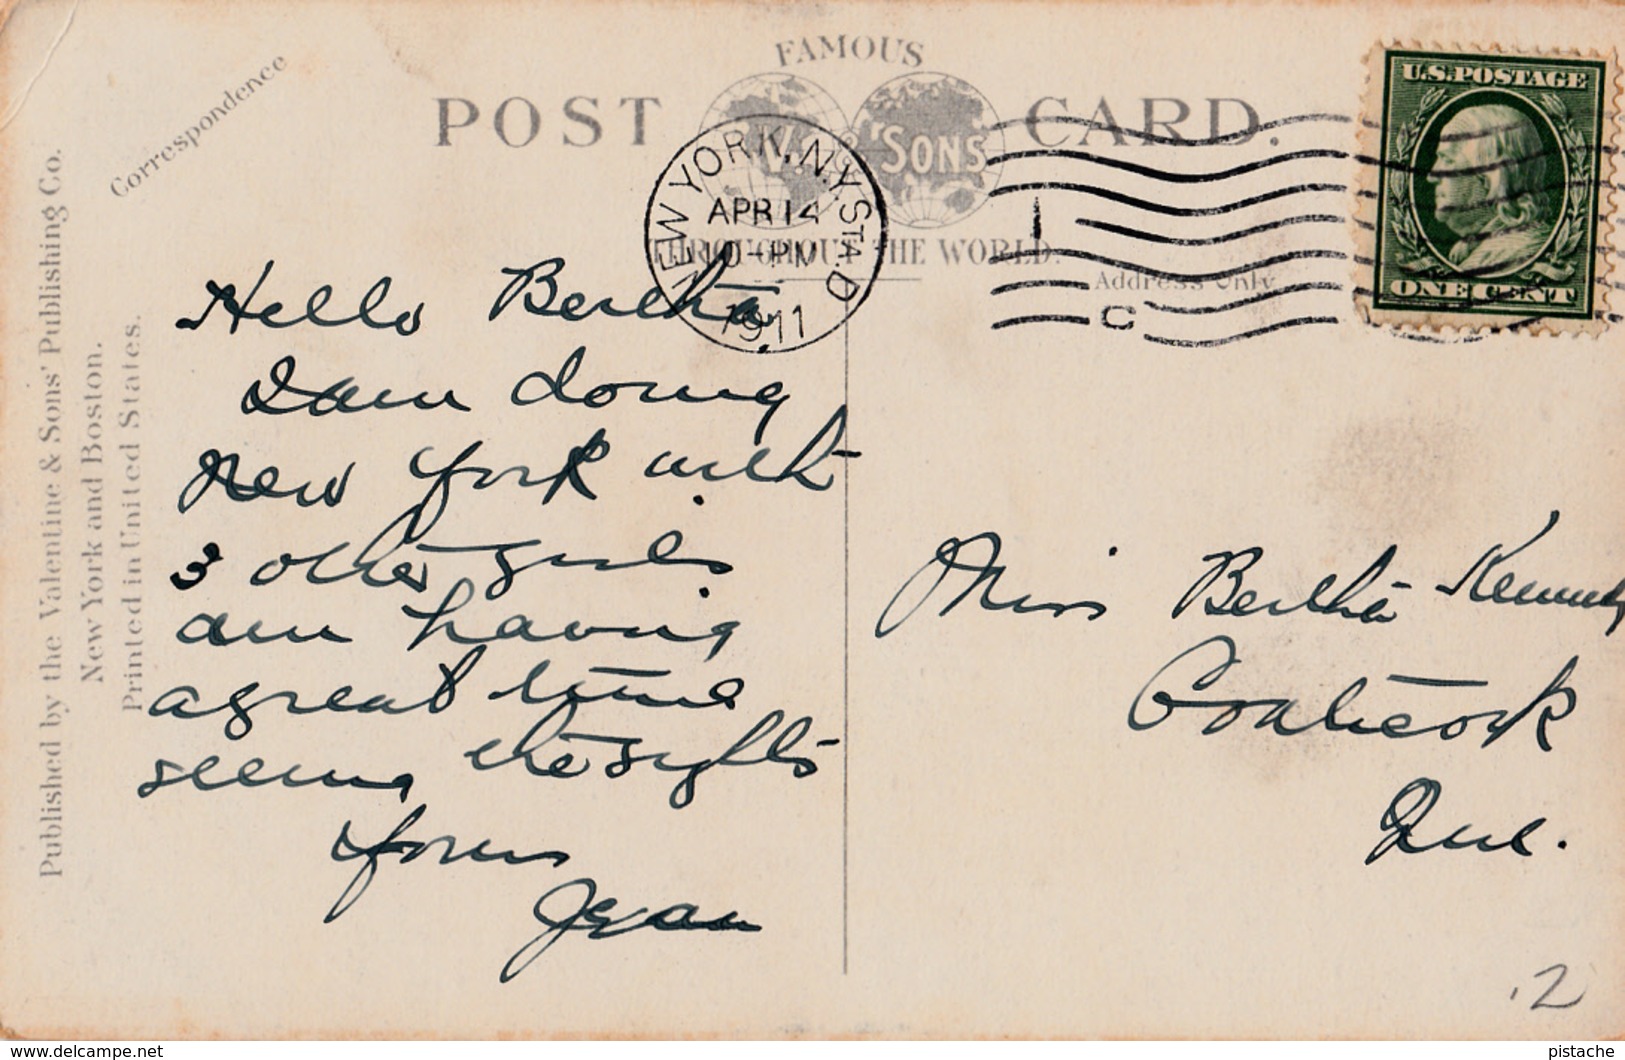 FAMOUS
POST CARD.
& SONS
THROUGHOUT THE WORLD.
Correspondence
Address Only
Published by the Valentine & Sons' Publishing Co.
New York and Boston.
Printed in United States.
NEW YORK, N.Y. STA. D
APR 14
PM
1911
C
U.S. POSTAGE
ONE CENT
Hello Bertha,
I am doing
New York with
3 other girls
am having
a great time
seeing the sights
Yours
Jean
Miss Bertha Kennedy
Coaticook
Que.
.2
delcampe.net
pistache